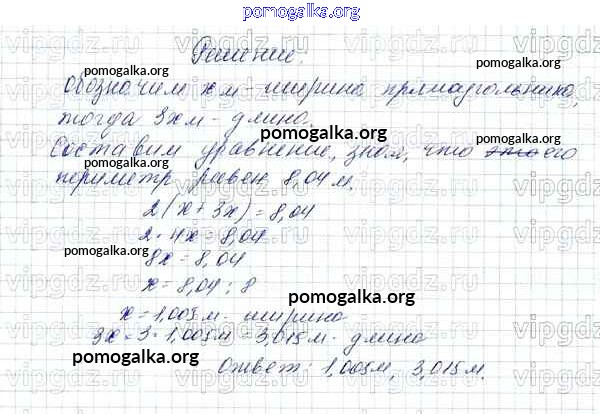 pomogalka.org
Решение.
обозначим x м - ширина прямоугольника,
тогда 3x м - длина.
Составим уравнение, зная, что это его
периметр равен 8,04 м.
2(x + 3x) = 8,04
2 · 4x = 8,04
8x = 8,04
x = 8,04 : 8
x = 1,005 м - ширина
3x = 3 · 1,005 м = 3,015 м - длина
Ответ: 1,005 м, 3,015 м.
pomogalka.org
pomogalka.org
pomogalka.org
pomogalka.org
pomogalka.org
pomogalka.org
pomogalka.org
vipgdz.ru vipgdz.ru vipgdz.ru vipgdz.ru